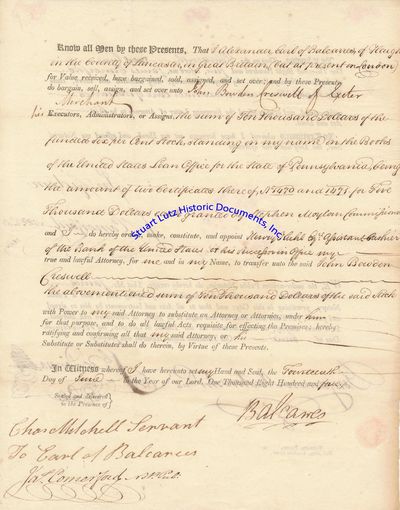 Know all Men by these Presents, That I Alexander, Earl of Balcarres, of Haigh
in the County of Lancaster, in Great Britain, (but at present in London)
for Value received, have bargained, sold, assigned, and set over; and by these Presents
do bargain, sell, assign, and set over unto John Bowdon Creswell of Exeter
Merchant
his Executors, Administrators, or Assigns the sum of Ten Thousand Dollars of the
funded six per Cent Stock, standing in my name on the Books
of the United States Loan Office for the State of Pennsylvania, being
the amount of two Certificates thereof, No 5470 and 5471 for Five
Thousand Dollars each granted by Stephen Moylan Commissioner
and I do hereby make, constitute, and appoint Henry Assistant Cashier
of the Bank of the United States or his Successor in Office my
true and lawful Attorney, for me and in my Name, to transfer unto the said John Bowdon
Creswell
the abovementioned sum of Ten Thousand Dollars of the said Stock
with Power to my said Attorney to substitute an Attorney or Attornies, under him
for that purpose, and to do all lawful Acts requisite for effecting the Premises; hereby
ratifying and confirming all that my said Attorney, or his
Substitute or Substitutes shall do therein, by Virtue of these Presents.
In Witness whereof I have hereunto set my Hand and Seal, the Fourteenth
Day of June in the Year of our Lord, One Thousand Eight Hundred and
Sealed and Delivered
in the Presence of
Balcarres
Chas Mitchell Servant
To Earl of Balcarres
Jas. Comerford
Stuart Lutz Historic Documents, Inc.